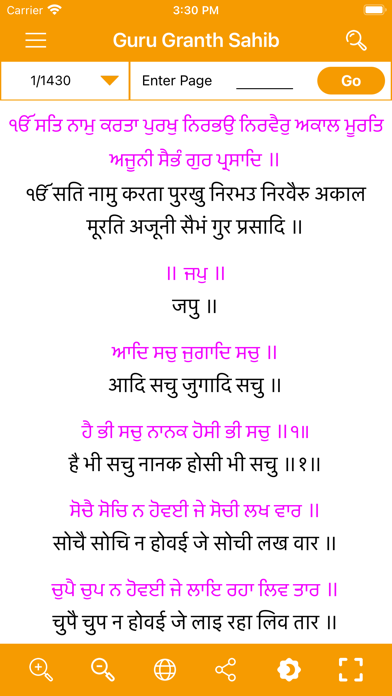 Carrier 3:30 PM
Guru Granth Sahib
1/1430 Enter Page Go
ੴ ਸਤਿ ਨਾਮੁ ਕਰਤਾ ਪੁਰਖੁ ਨਿਰਭਉ ਨਿਰਵੈਰੁ ਅਕਾਲ ਮੂਰਤਿ
ਅਜੂਨੀ ਸੈਭੰ ਗੁਰ ਪ੍ਰਸਾਦਿ ॥
ੴ सति नामु करता पुरखु निरभउ निरवैरु अकाल
मूरति अजूनी सैभं गुर प्रसादि ॥
॥ ਜਪੁ ॥
जपु ॥
ਆਦਿ ਸਚੁ ਜੁਗਾਦਿ ਸਚੁ ॥
आदि सचु जुगादि सचु ॥
ਹੈ ਭੀ ਸਚੁ ਨਾਨਕ ਹੋਸੀ ਭੀ ਸਚੁ ॥੧॥
है भी सचु नानक होसी भी सचु ॥१॥
ਸੋਚੈ ਸੋਚਿ ਨ ਹੋਵਈ ਜੇ ਸੋਚੀ ਲਖ ਵਾਰ ॥
सोचै सोचि न होवई जे सोची लख वार ॥
ਚੁਪੈ ਚੁਪ ਨ ਹੋਵਈ ਜੇ ਲਾਇ ਰਹਾ ਲਿਵ ਤਾਰ ॥
चुपै चुप न होवई जे लाइ रहा लिव तार ॥